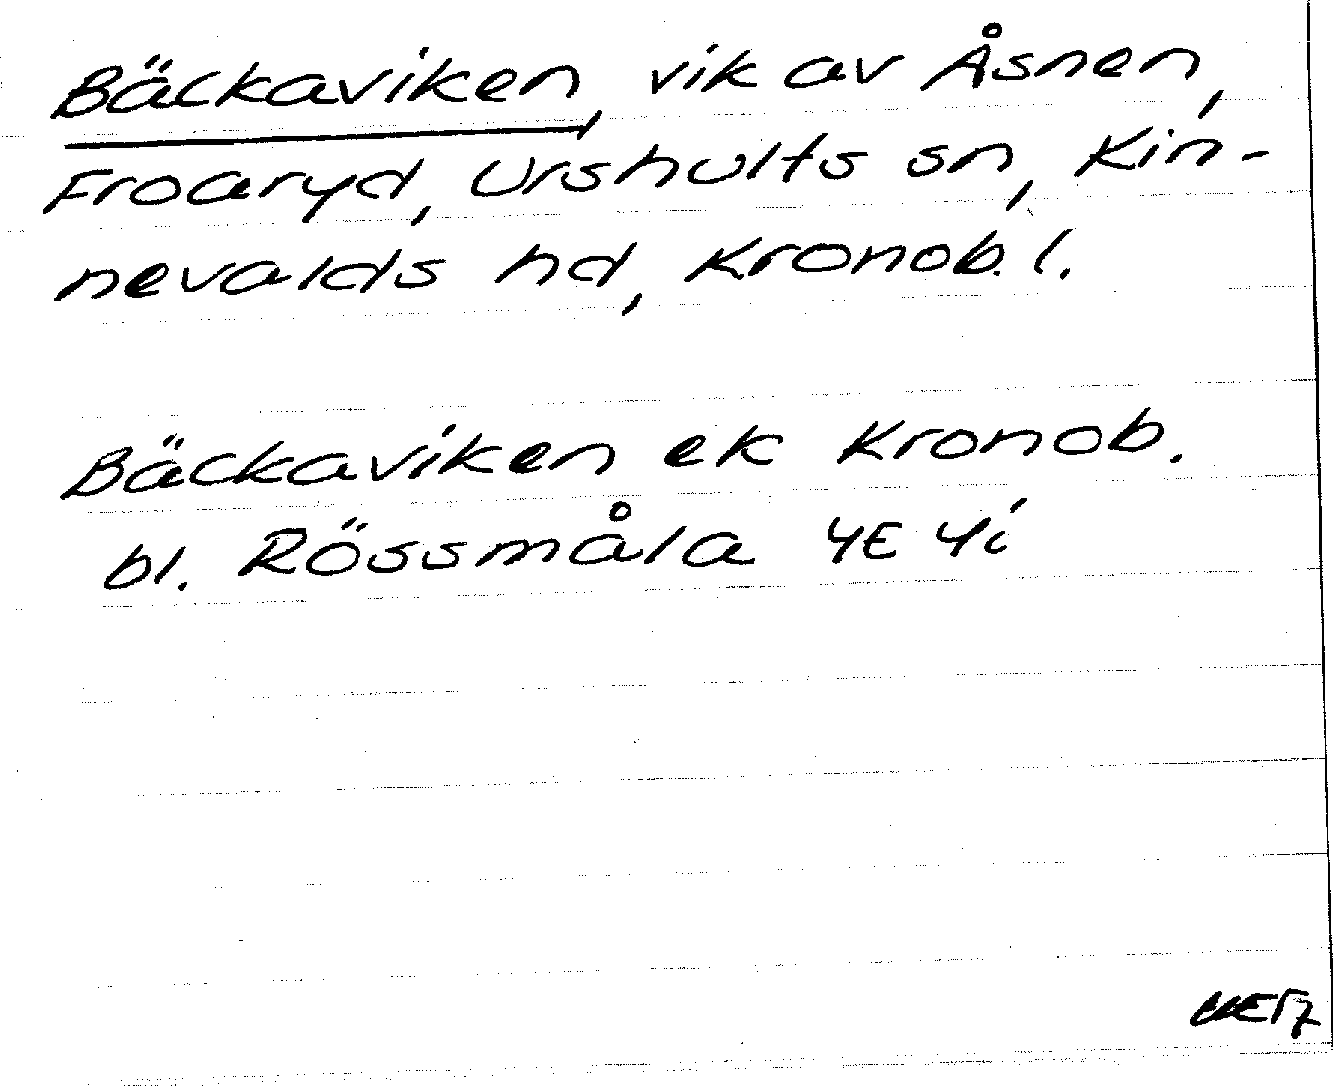 Bäckaviken, vik av Åsnen,
Froaryd, Urshults sn, Kin-
nevalds hd, Kronob. l.
Bäckaviken ek Kronob.
bl. Rössmåla 4E 4i